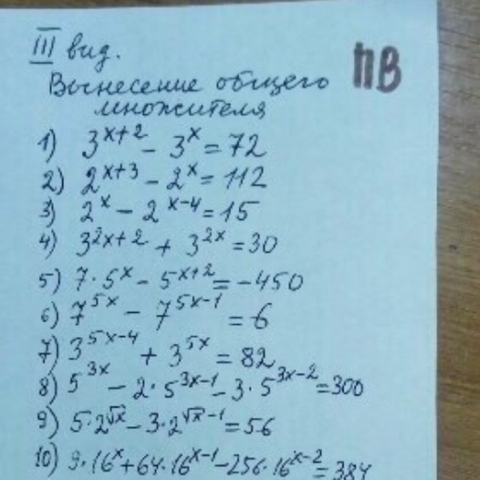 III вид.
ПВ
Вынесение общего
множителя
1) 3^{x+2} - 3^x = 72
2) 2^{x+3} - 2^x = 112
3) 2^x - 2^{x-4} = 15
4) 3^{2x+2} + 3^{2x} = 30
5) 7·5^x - 5^{x+2} = -450
6) 7^{5x} - 7^{5x-1} = 6
7) 3^{5x-4} + 3^{5x} = 82
8) 5^{3x} - 2·5^{3x-1} - 3·5^{3x-2} = 300
9) 5·2^{√x} - 3·2^{√x-1} = 56
10) 9·16^x + 64·16^{x-1} - 256·16^{x-2} = 384